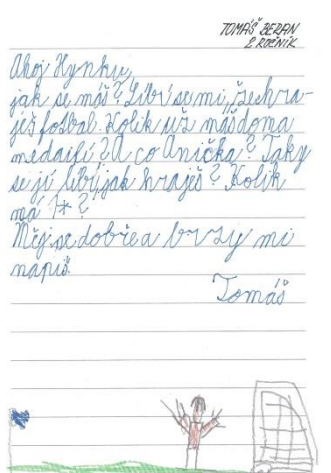 TOMÁŠ BERAN
2. ROČNÍK
Ahoj Hynku,
jak se máš? Líbí se mi, že hra-
ješ fotbal. Kolik už máš doma
medailí? A co Anička? Taky
se jí líbí, jak hraješ? Kolik
má 1*?
Měj se dobře a brzy mi
napiš.
Tomáš